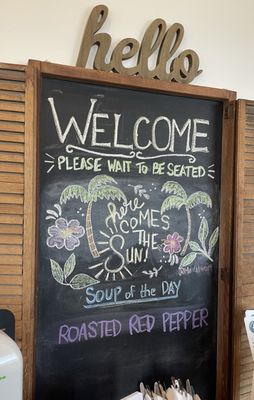 hello
WELCOME
PLEASE WAIT TO BE SEATED
here
COMES
THE
SUN!
SOUP of the DAY
ROASTED RED PEPPER